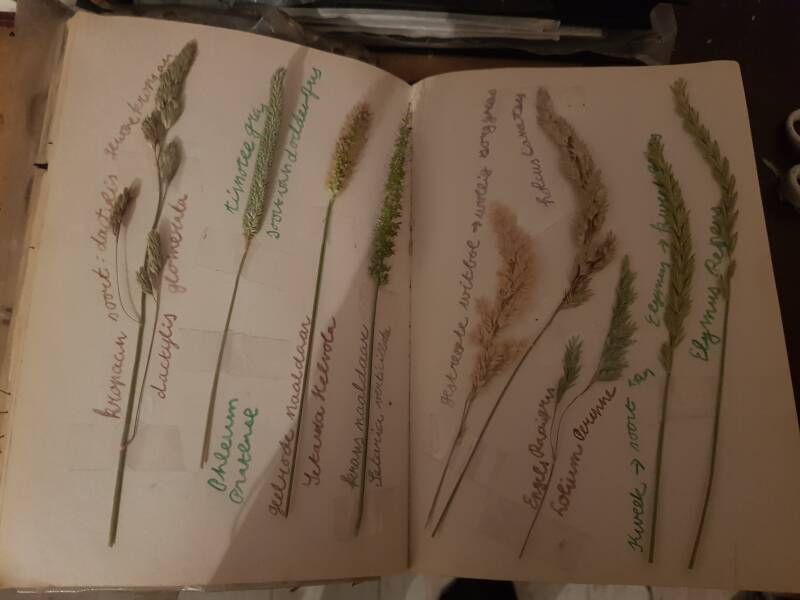 kropaar soort: dactylis
dactylis glomerata
timotee gras
soort van doddegras
Phleum
Pratense
geelrode naaldaar
Setaria Helvola
krans naaldaar
Setaria verticillata
gestreepte witbol → wollig zorggras
holcus Lanatus
Engels Raaigras
lolium Perenne
Kweek → soort
Elymus → kweekgras
Elymus Repens